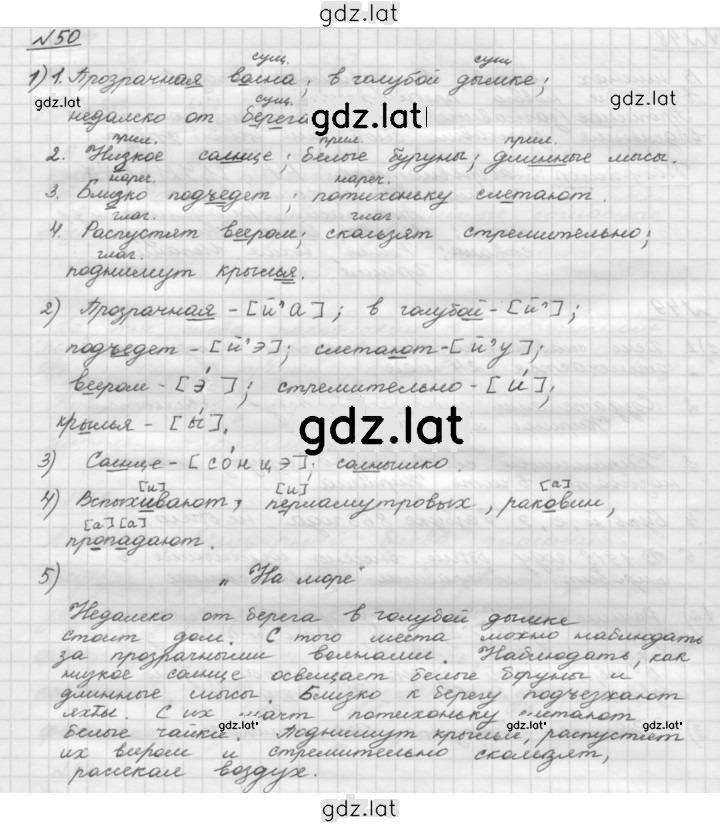 gdz.lat
№50
сущ. сущ
1) 1. Прозрачная волна; в голубой дымке;
gdz.lat
сущ.
недалеко от берега
gdz.lat
прил. прил. прил.
2. Низкое солнце; белые буруны; длинные мысы.
нареч. нареч.
3. Близко подъедет; потихоньку слетают.
глаг. глаг.
4. Распустят веером; скользят стремительно;
глаг.
поднимут крылья.
2) Прозрачная - [й'а]; в голубой - [й'];
подъедет - [й'э]; слетают - [й'у];
веером - [э́]; стремительно - [и́];
крылья - [ы́].
gdz.lat
3) Солнце - [со́нцэ]; солнышко.
[и] [и] [а]
4) Вспыхивают, перламутровых, раковин,
[а] [а]
пропадают.
5) „На море"
Недалеко от берега в голубой дымке
стоит дом. С того места можно наблюдать
за прозрачными волнами. Наблюдать, как
низкое солнце освещает белые буруны и
длинные мысы. Близко к берегу подъезжают
яхты. С их мачт потихоньку слетают
gdz.lat gdz.lat gdz.lat
белые чайки. Поднимут крылья, распустят
их веером и стремительно скользят,
рассекая воздух.
gdz.lat